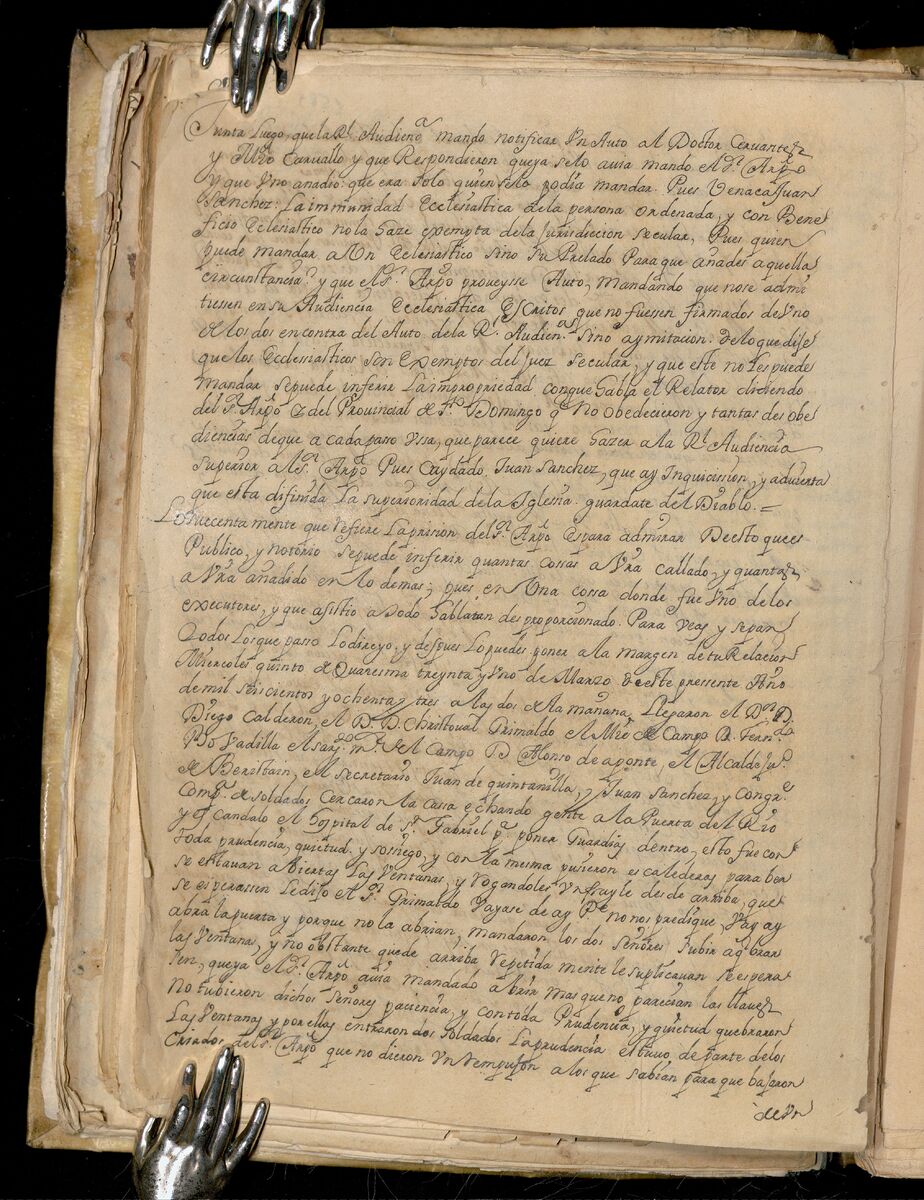 Junta Luego, que la Rl Audiena mando notificar Vn Auto al Doctor Cervantes
y Mro Caruallo y que Respondieron que ya selo auia mando el Sr Arpo
y que Vno añadio: que era solo quien selo podia mandar. Pues Ven aca Juan
Sanchez: La immunidad Ecclesiastica dela persona ordenada, y con Bene
ficio Eclesiastico nola haze exempta dela Jurisdiccion secular, Pues quien
puede mandar a Vn Eclesiastico sino su Prelado Para que añades aquella
circunstancia? y que el Sr Arpo proueysse Auto, mandando que nose admi
tiessen en su Audiencia Ecclesiastica Escritos que no fuessen firmados de Vno
de los dos encontra del Auto dela Rl Audiena sino aymitacion. delo que dise
que los Ecclesiasticos son Exemptos del juez secular, y que este no les puede
mandar, sepuede inferir La impropriedad conque habla el Relator diciendo
del Sr Arpo & del Provincial de Sto Domingo qe No obedecieron y tantas desobe
diencias deque a cada passo Vssa, que parece quiere hazer a la Rl Audiencia
superior al Sr Arpo Pues Cuydado, Juan Sanchez, que ay Inquicission, y aduierta
que esta difinida la superioridad dela Iglesia. guardate del Diablo. =
Lo que centa mente que refiere La prision del Sr Arpo Es para admirar De esto que es
Publico, y notorio sepuede inferir quantas cossas a Vra callado, y quantas
a Vra añadido en lo demas; pues en Vna cossa donde fue Vno de los
executores, y que asistio a todo hablatan desproporcionado. Para Veas y sepan
Todos Los que passo Lo dire yo, y despues Lo puedes poner a la margen de tu Relacion
Miercoles quinto de Quaresma treynta y Vno de Marzo de este pressente Año
de mil seiscientos y ochenta y tres a las dos de la mañana, Llegaron el Dn D.
Diego Calderon, el D. D. Christoual Grimaldo el Mre de Campo D. Ferndo
Vadilla el sargto mr del Campo D. Alonso de aponte, el Alcalde Juo
de Beristain, el secretario Juan de quintanilla, y Juan Sanchez, y Congre
Compa de soldados Cercaron la cassa echando gente a la Puerta del Rio
y escandalo el hospital de Sn Gabriel pa poner Guardias dentro, esto fue con
toda prudencia, quietud, y sosiego, y con la mesma pusieron escaleras para ber
se estauan abiertas Las Ventanas, y rogandoles Vn frayle desde arriba, que
se esperassen Le dijo el Sr Grimaldo Vayase de ay Pe no nos predique, Vay ay
abra la puerta y porque no la abrian, mandaron los dos señores subir aqbrar
las Ventanas, y no obstante quede arriba repetida mente le suplicauan esperas
sen, queya el Sr Arpo auia mandado abrir mas que no parecian las llaues
No tubieron dichos señores paciencia, y con toda Prudencia, y quietud quebraron
Las Ventanas y por ellas entraron dos Soldados La prudencia estuuo de parte de los
Criados del Sr Arpo que no dieron Vn rempujon a los que subian para que bajaron
de Vn